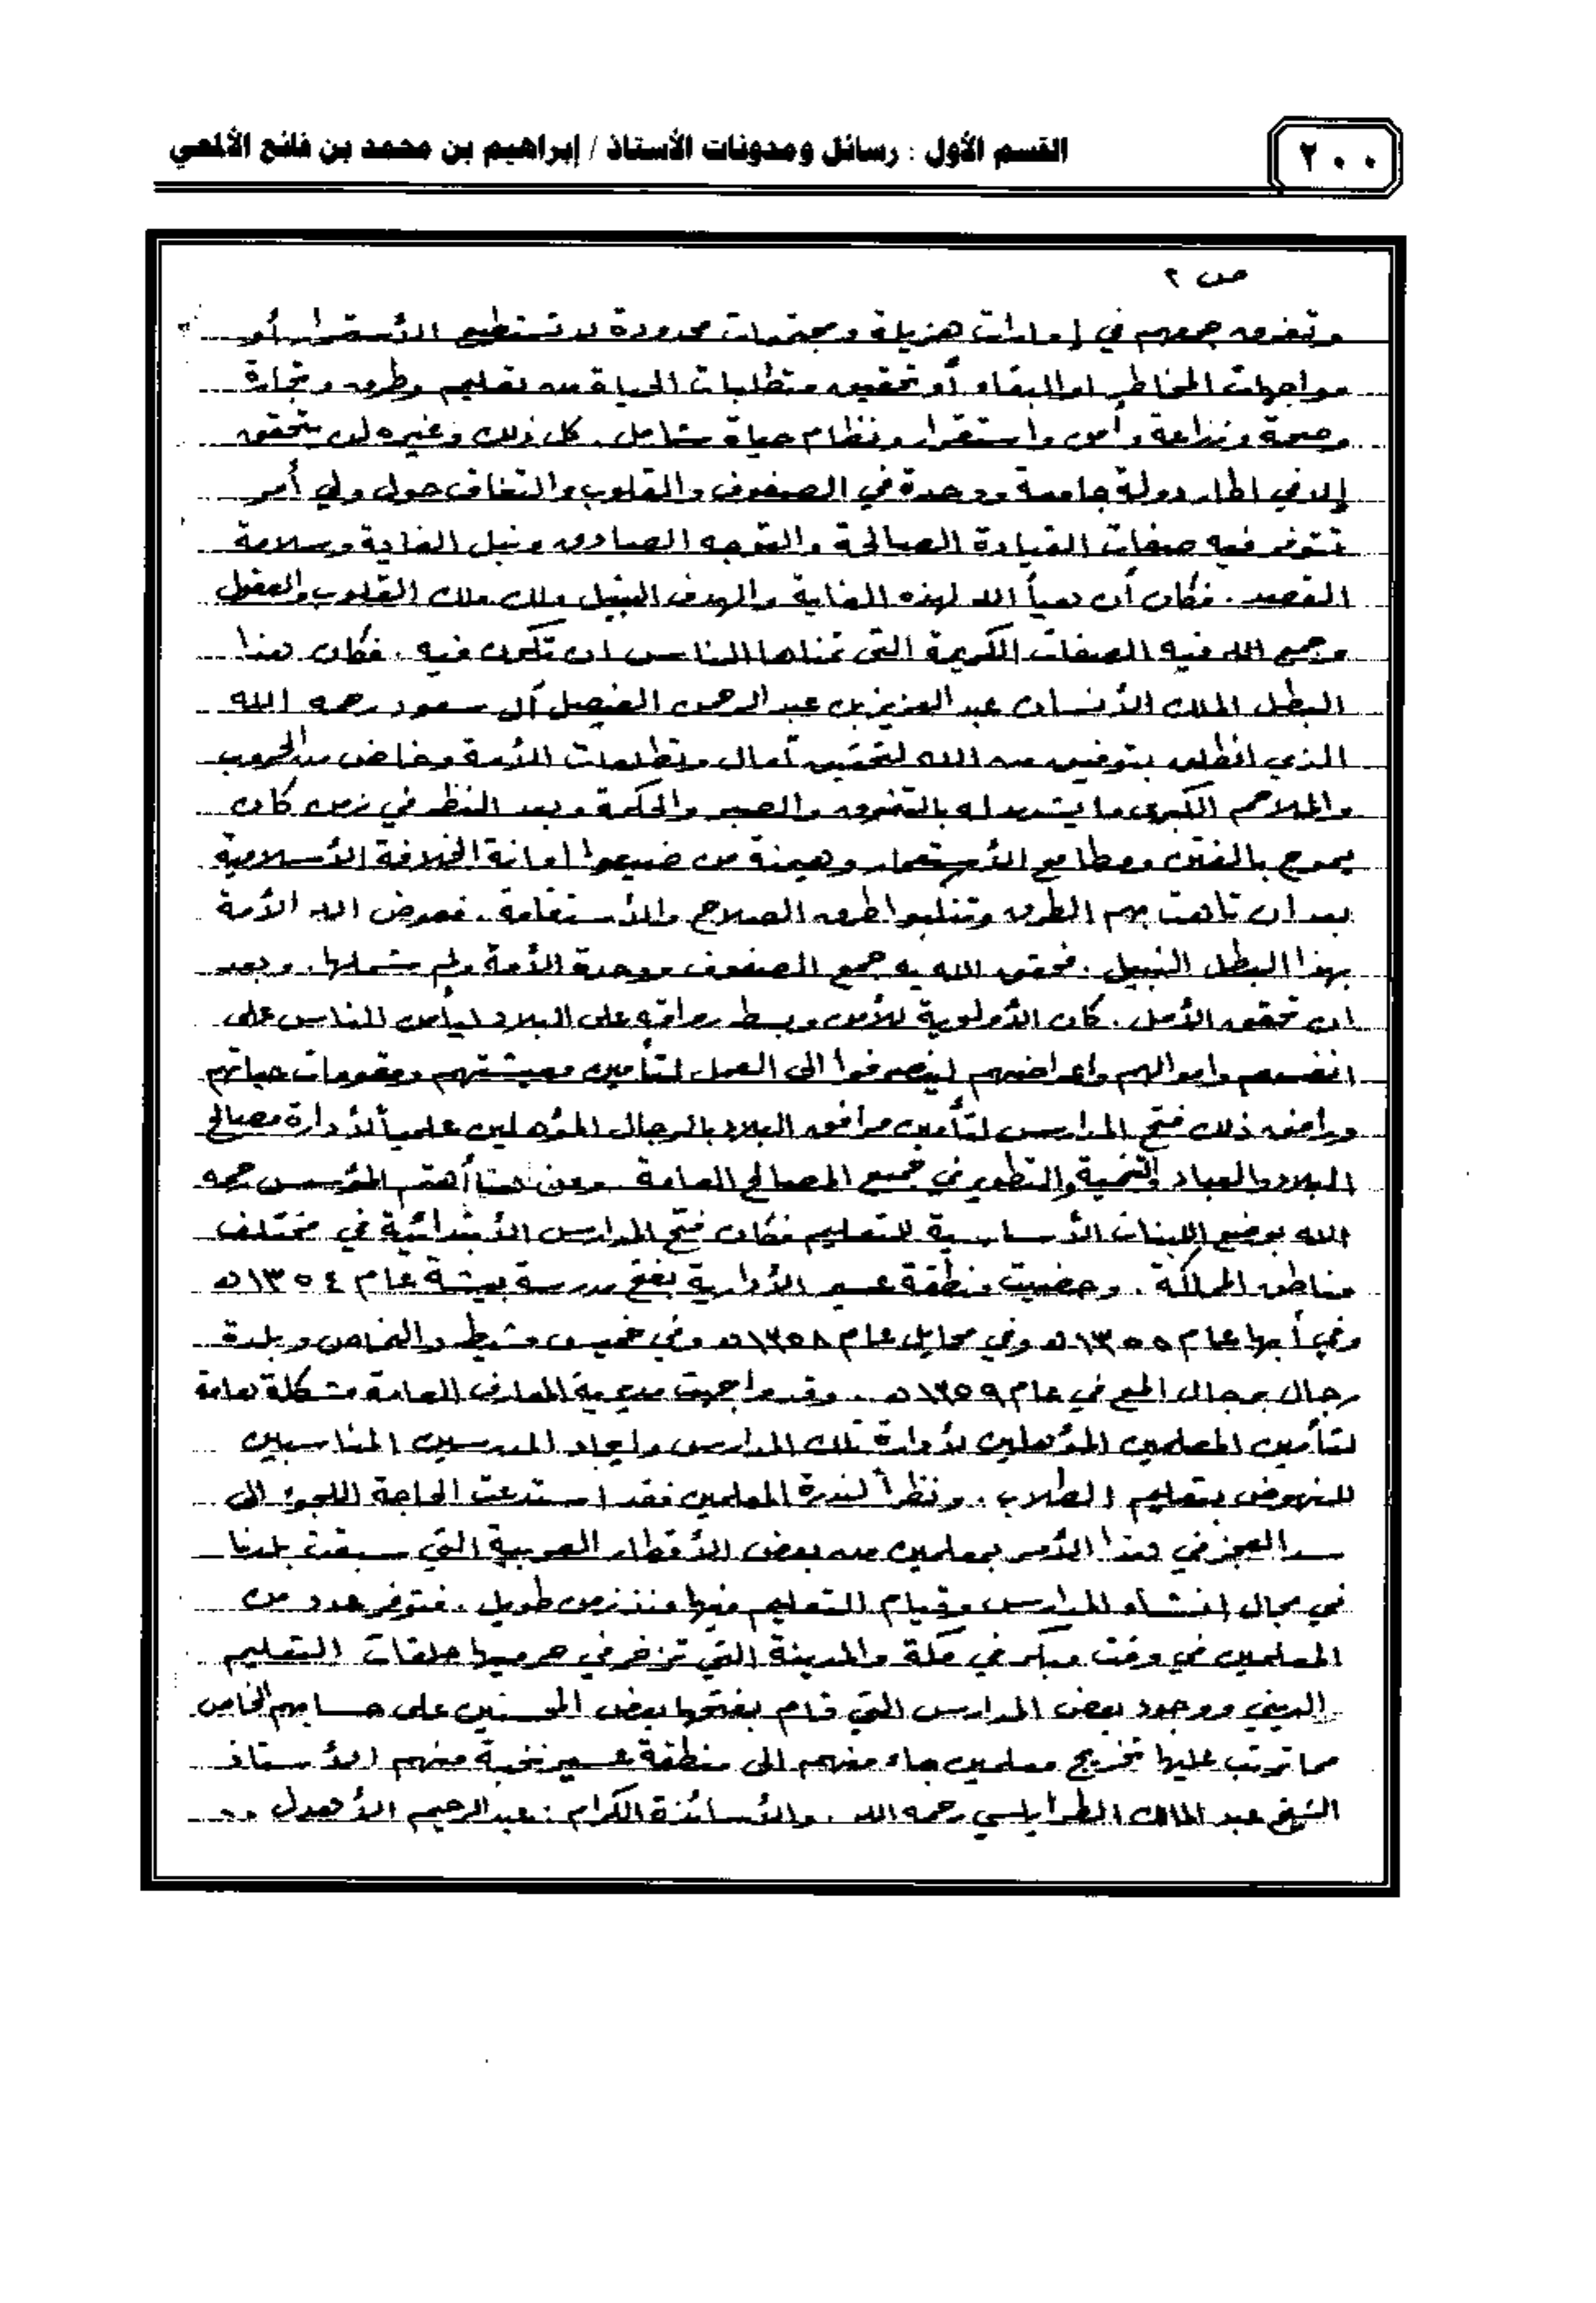 القسم الأول : رسائل ومدونات الأستاذ / إبراهيم بن محمد بن فائع الألمعي
٢٠٠
ص ٢
وتفرق جمعهم في إمارات هزيلة ومجتمعات محدودة لا تستطيع الأستقرار أو
مواجهات المخاطر او البقاء أو تحقيق متطلبات الحياة من تعليم وطرق وتجارة
وصحة وزراعة وأمن واستقرار ونظام حياة شامل. كل ذلك وغيره لن يتحقق
إلا في اطار دولة جامعة ووحدة في الصفوف والقلوب والتفاف حول ولي أمر
تتوفر فيه صفات القيادة الصالحة والتوجه الصادق ونبل الغاية وسلامة
القصد. فكان أن هيأ الله لهذه الغاية والهدف النبيل ملك ملك القلوب والعقول
وجمع الله فيه الصفات الكريمة التي تمناها الناس ان تكون فيه. فكان هذا
البطل الملك الأنسان عبد العزيز بن عبد الرحمن الفيصل آل سعود رحمه الله
الذي انطلق بتوفيق من الله لتحقيق آمال وتطلعات الأمة وخاض من الحروب
والملاحم الكبرى ما يشهد له بالتفوق والصبر والحكمة وبعد النظر في زمن كان
يموج بالفتن ومطامع الأستعمار وهيمنة من ضيعوا امانة الخلافة الأسلامية
بعد ان تاهت بهم الطرق وتنكبوا طرق الصلاح والأستقامة. فعوض الله الأمة
بهذا البطل النبيل. فحقق الله به جمع الصفوف ووحدة الأمة ولم شملها. وبعد
ان تحقق الأمل. كان الأولوية للأمن وبسط رواقه على البلاد ليأمن الناس على
انفسهم واموالهم واعراضهم لينصرفوا الى العمل لتأمين معيشتهم ومقومات حياتهم
ورافق ذلك فتح المدارس لتأمين مرافق البلاد بالرجال المؤهلين علمياً لأدارة مصالح
البلاد والعباد والتنمية والتطوير في جميع المصالح العامة. ومن هنا أهتم المؤسس رحمه
الله بوضع اللبنات الأساسية للتعليم فكان فتح المدارس الأبتدائية في مختلف
مناطق المملكة. وحضيت منطقة عسير الأدارية بفتح مدرسة بيشة عام ١٣٥٤ه
وفي أبها عام ١٣٥٥ه وفي محايل عام ١٣٥٨ه وفي خميس مشيط والنماص وبلدة
رجال برجال المع في عام ١٣٥٩ه.. وقد واجهت مديرية المعارف العامة مشكلة هامة
لتأمين المعلمين المؤهلين لأدارة تلك المدارس وايجاد المدرسين المناسبين
للنهوض بتعليم الطلاب. ونظراً لندرة المعلمين فقد استدعت الحاجة اللجوء الى
سد العجز في هذا الأمر بمعلمين من بعض الأقطار العربية التي سبقت بلدنا
في مجال انشاء المدارس وقيام التعليم فيها منذ زمن طويل. فتوفر عدد من
المعلمين في وقت مبكر في مكة والمدينة التي تزخر في حرميها حلقات التعليم
الديني ووجود بعض المدارس التي قام بفتحها بعض المحسنين على حسابهم الخاص
مما ترتب عليها تخريج معلمين جاء منهم الى منطقة عسير نخبة منهم الأستاذ
الشيخ عبد المالك الطرابلسي رحمه الله. والأساتذة الكرام: عبد الرحيم الأهدل ..